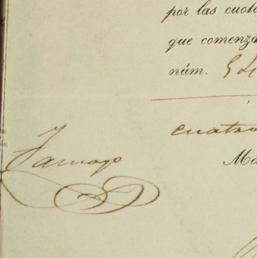 por las cuot
que comenza
núm.
cuatro
Ma
Tamayo